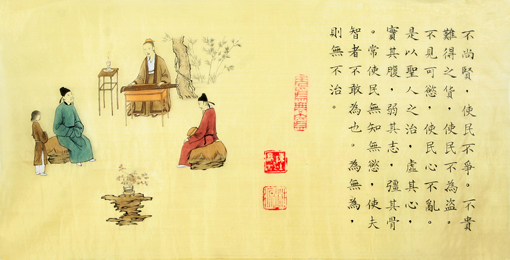 不尚賢，使民不爭。不貴
難得之貨，使民不為盜，
不見可慾，使民心不亂。
是以聖人之治，虛其心，
實其腹，弱其志，彊其骨
。常使民無知無慾，使夫
智者不敢為也。為無為，
則無不治。